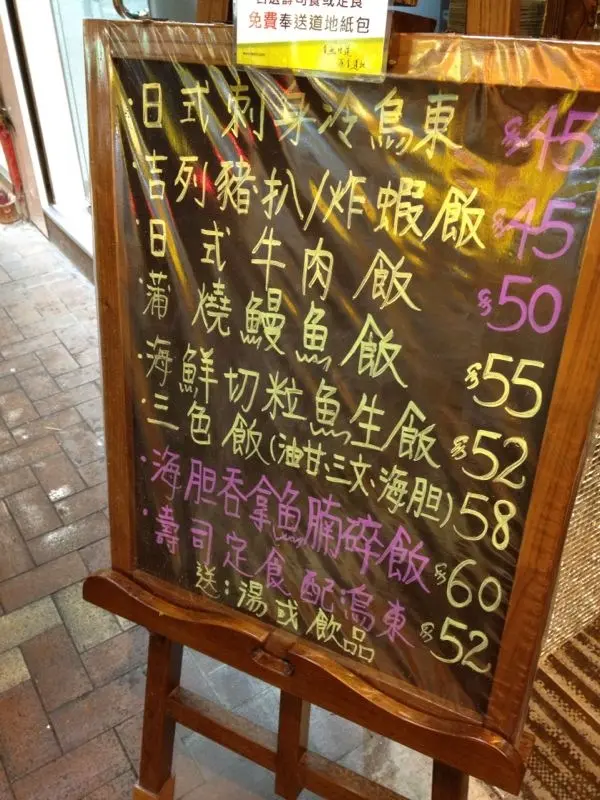 自選壽司餐或定食
免費奉送道地紙包
·日式刺身冷烏東 $45
·吉列豬扒/炸蝦飯 $45
·日式牛肉飯 $50
·蒲燒鰻魚飯 $55
·海鮮切粒魚生飯 $52
·三色飯(油甘、三文、海胆) 58
·海胆吞拿魚腩碎飯 $60
·壽司定食配烏東 $52
送:湯或飲品